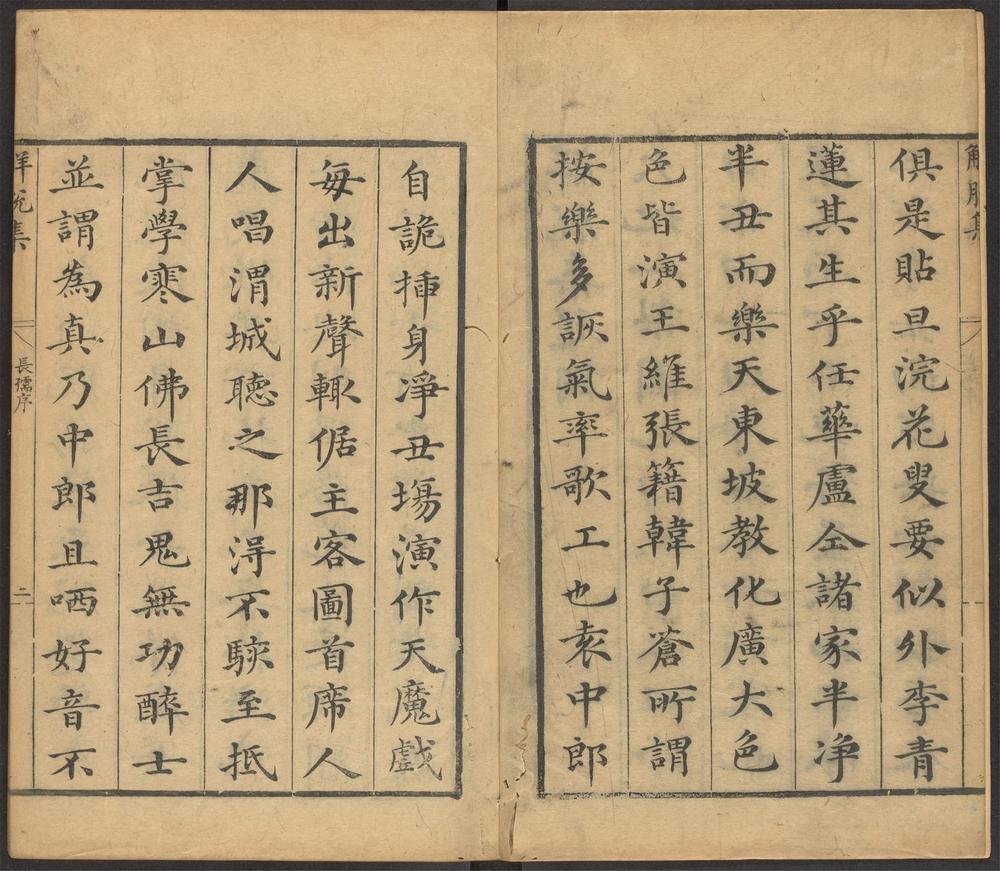 解脫集
俱是貼旦浣花叟要似外李青
蓮其生乎任華盧仝諸家半凈
半丑而樂天東坡教化廣大色
色皆演王維張籍韓子蒼所謂
按樂多詼氣率歌工也袁中郎
自詭揷身凈丑塲演作天魔戲
每出新聲輙倨主客圖首席人
人唱渭城聽之那淂不駭至抵
掌學寒山佛長吉鬼無功醉士
並謂為真乃中郎且哂好音不
解脫集
長孺序
二